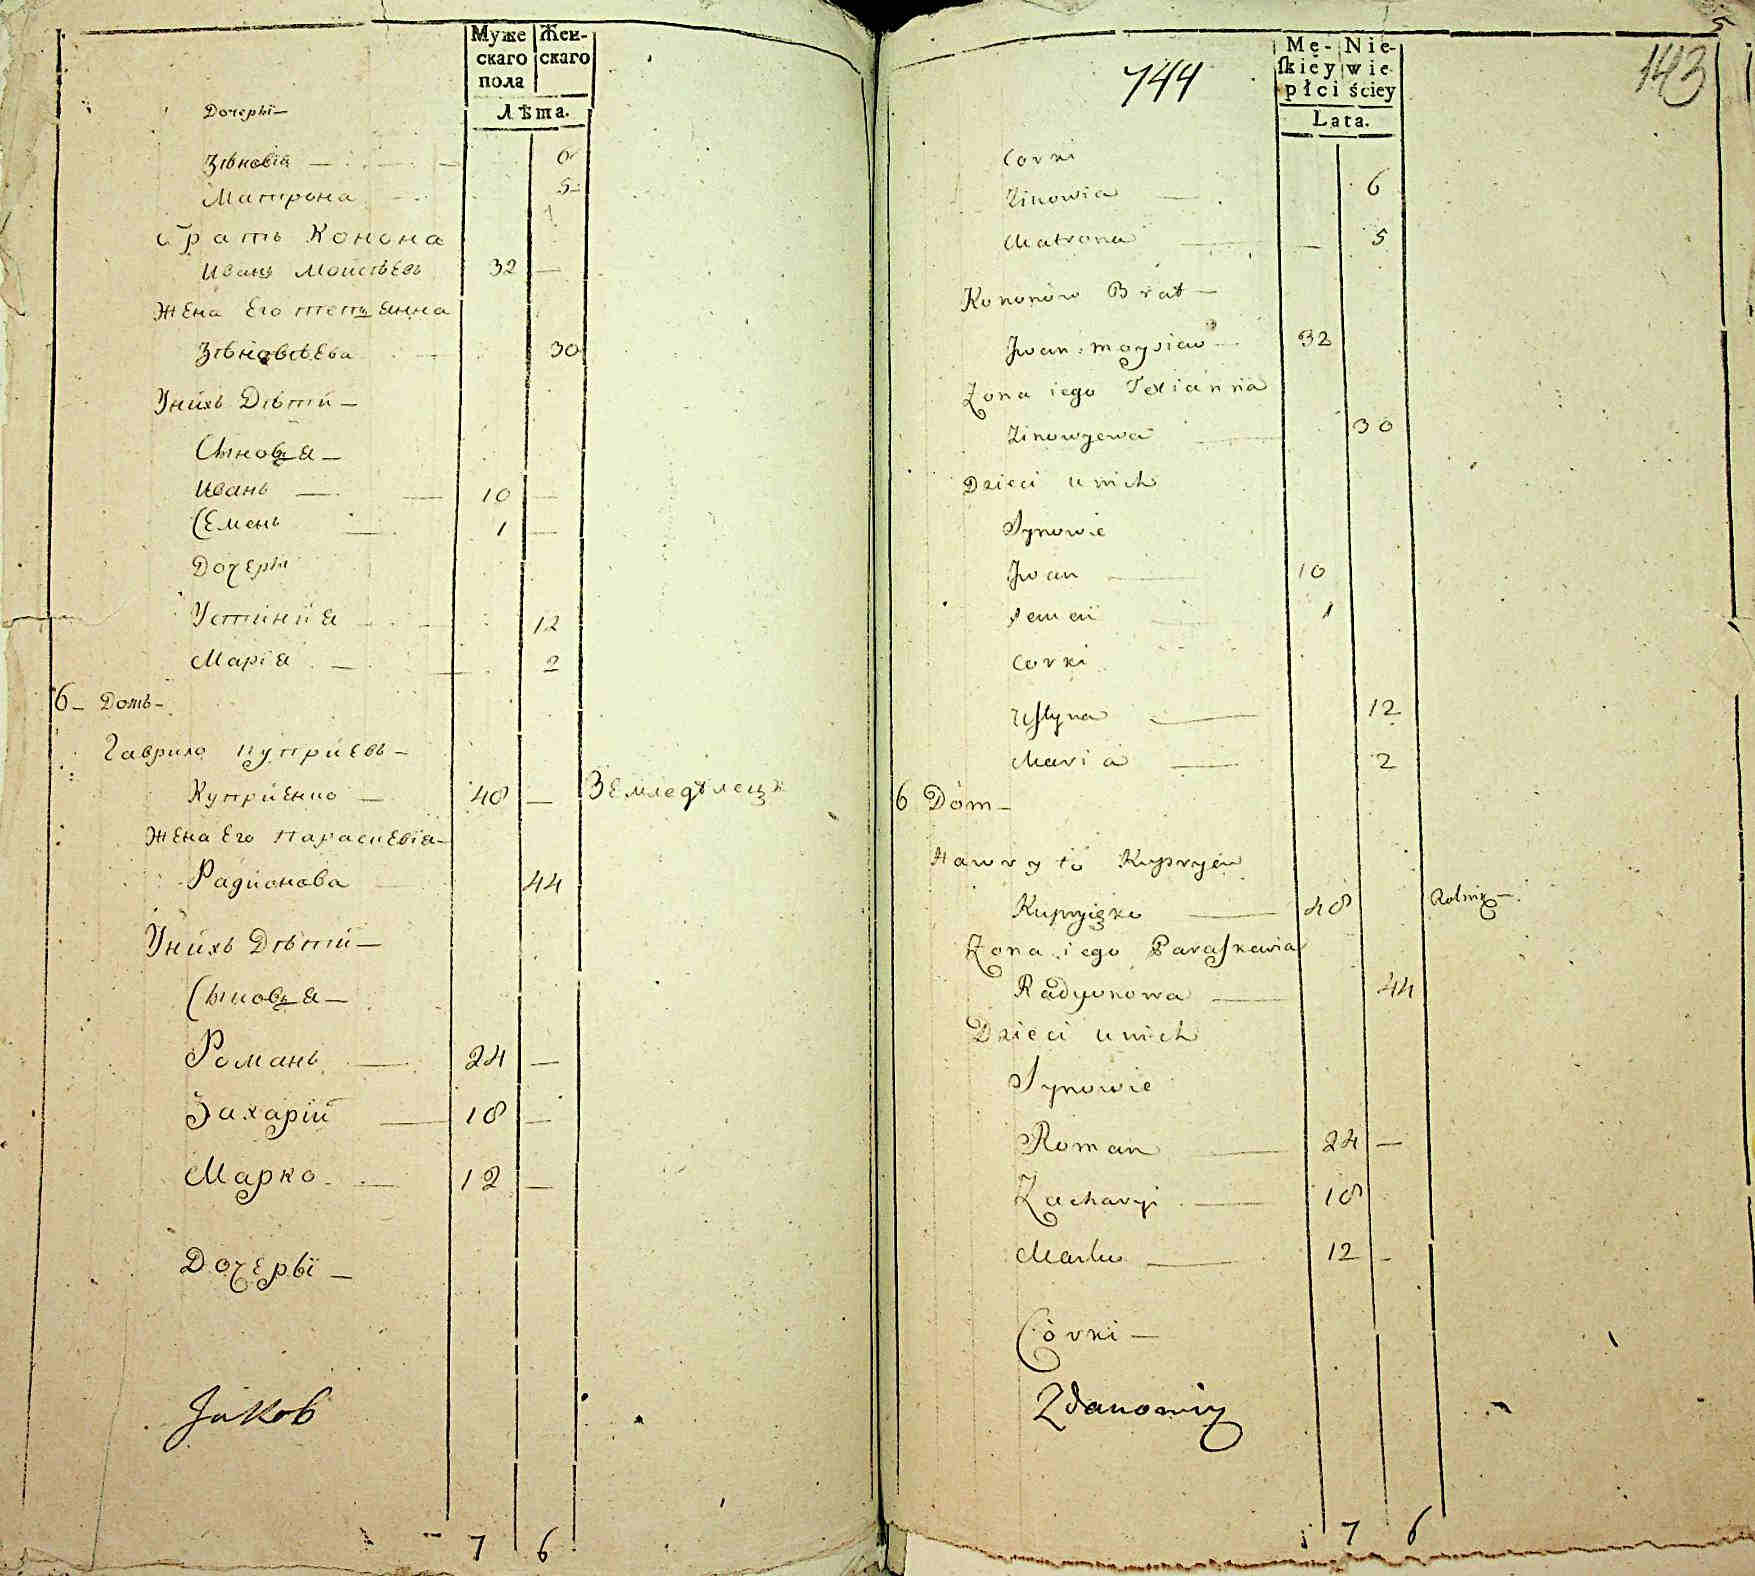 Муже Жен-
скаго скаго
пола
Лѣта.
Дочеры—
Зѣновія — 6
Матрона — 5
Братъ Конона
Иванъ Моисѣевъ 32 —
Жена Его тетьянна
Зѣновѣева 30
Унихъ Дѣти —
Сыновья —
Иванъ — 10 —
Семенъ — 1 —
Дочеры
Устиния — 12
Марія — 2
6 — Домъ —
Гаврило Куприевъ —
Куприенко — 48 — Земледѣлецъ
Жена Его Параскевія —
Радионова 44
Унихъ Дѣти —
Сыновья —
Романъ — 24 —
Захарій — 18 —
Марко — 12 —
Дочеры —
Jakob
7 6
5
143
744
Mę- Nie-
ſkiey wie
płci ściey
Lata.
Corki
Zinowia — 6
Matrona — 5
Kononów Brat —
Jwan Moysiew — 32
Zona iego Tetianna
Zinowyewa — 30
Dzieci u nich
Synowie
Jwan — 10
Semen — 1
Corki
Uſtyna — 12
Maria — 2
6 Dóm —
Hawryło Kupryew
Kupryięko — 48 Rolnik —
Zona iego Paraſkewia
Radyonowa — 44
Dzieci u nich
Synowie
Roman — 24 —
Zacharyi — 18
Marko — 12 —
Córki —
Zdanowicz
7 6